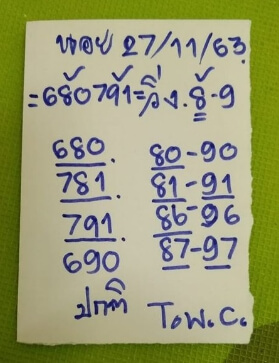 นอย 27/11/63
=680791=วิ่ง.8-9
680. 80-90
781. 81-91
791. 86-96
690 87-97
ปกติ T.W.C.